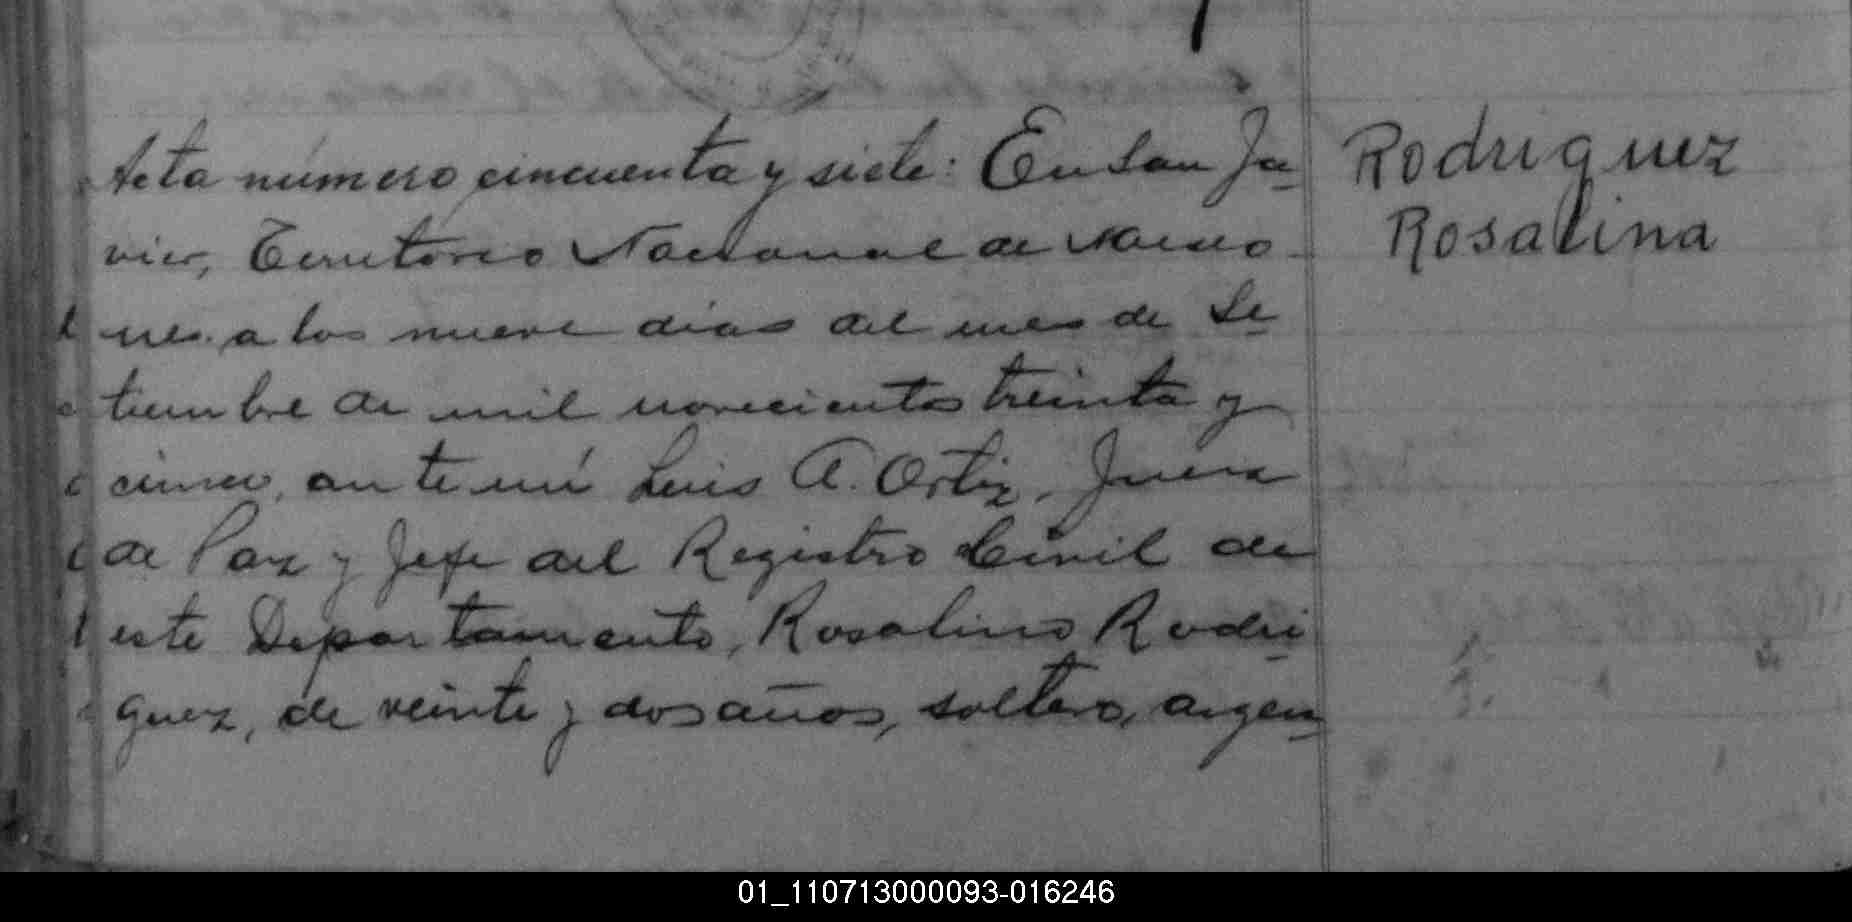 Acta número cincuenta y siete: En San Ja-
vier, Territorio Nacional de Misio-
nes. a los nueve dias del mes de Se-
tiembre de mil novecientos treinta y
cinco, ante mí Luis A. Ortiz, Juez
de Paz y Jefe del Registro Civil de
este Departamento, Rosalino Rodri-
guez, de veinte y dos años, soltero, argen-
Rodriguez
Rosalina
01_110713000093-016246